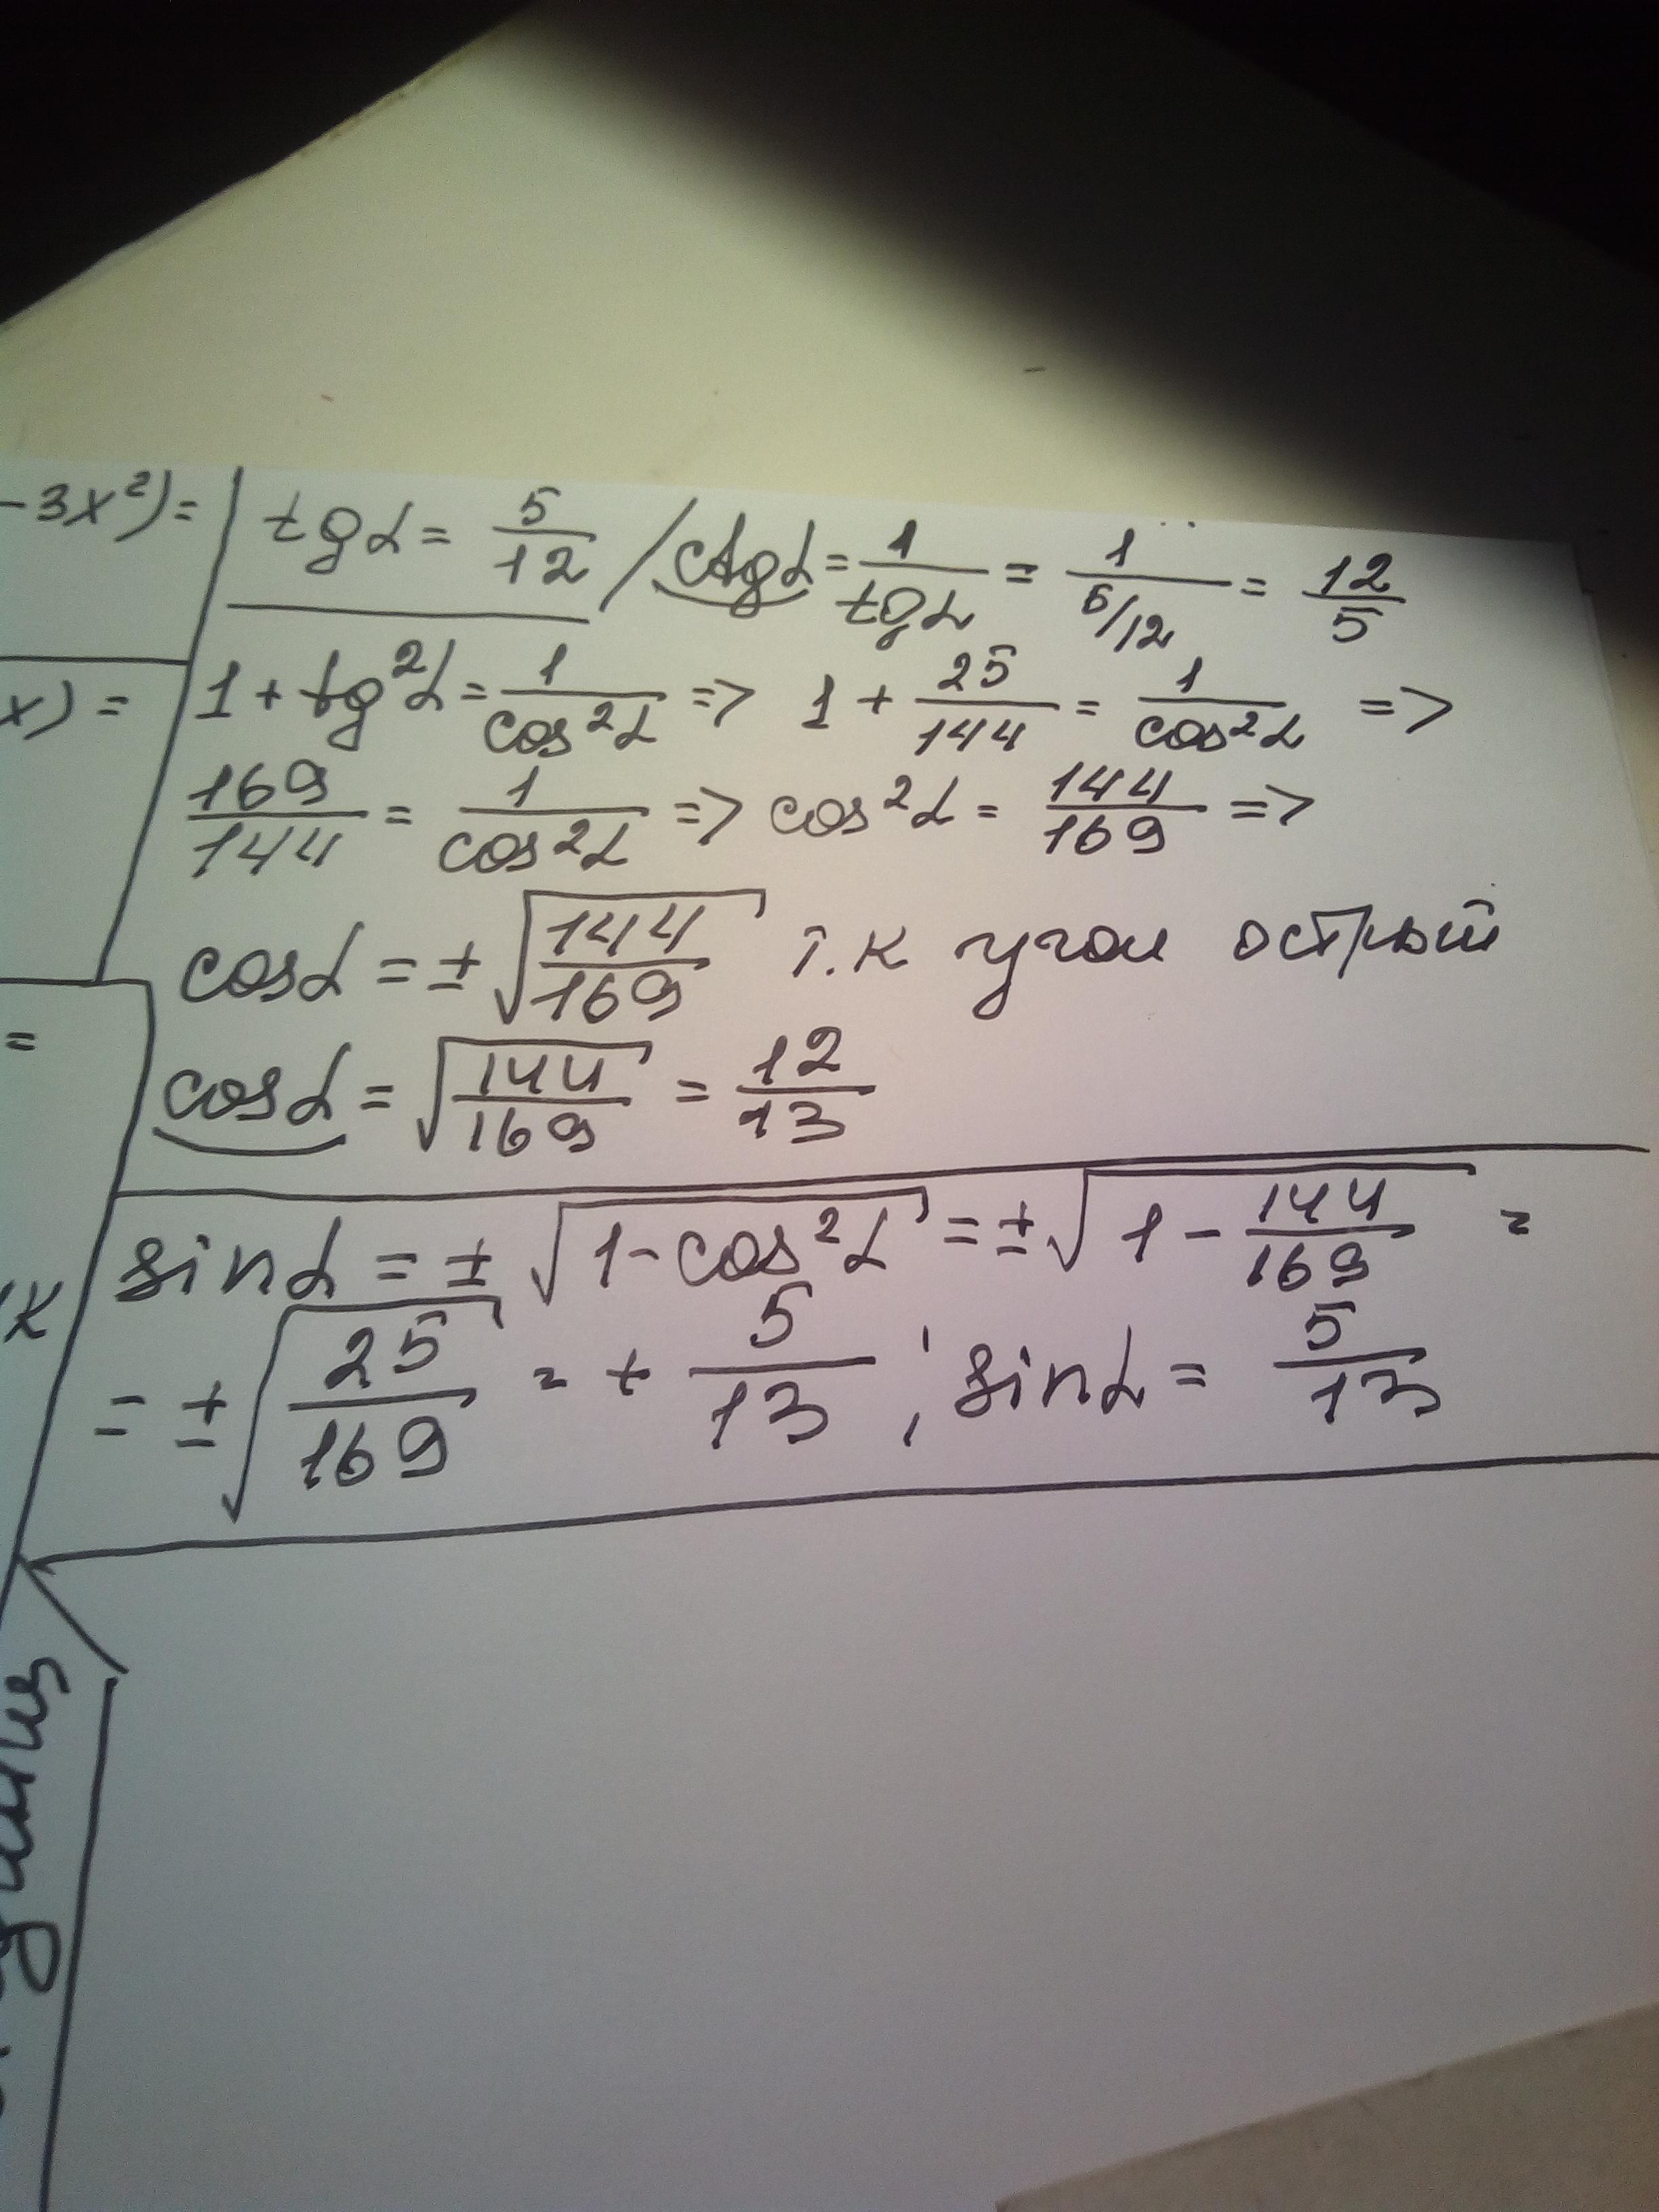 -3x²)=
x) =
=
tgα = 5/12 / ctgα = 1/tgα = 1/(5/12) = 12/5
1 + tg²α = 1/cos²α => 1 + 25/144 = 1/cos²α =>
169/144 = 1/cos²α => cos²α = 144/169 =>
cosα = ± √(144/169) т.к угол острый
cosα = √(144/169) = 12/13
sinα = ± √(1-cos²α) = ± √(1 - 144/169) =
= ± √(25/169) = + 5/13 ; sinα = 5/13